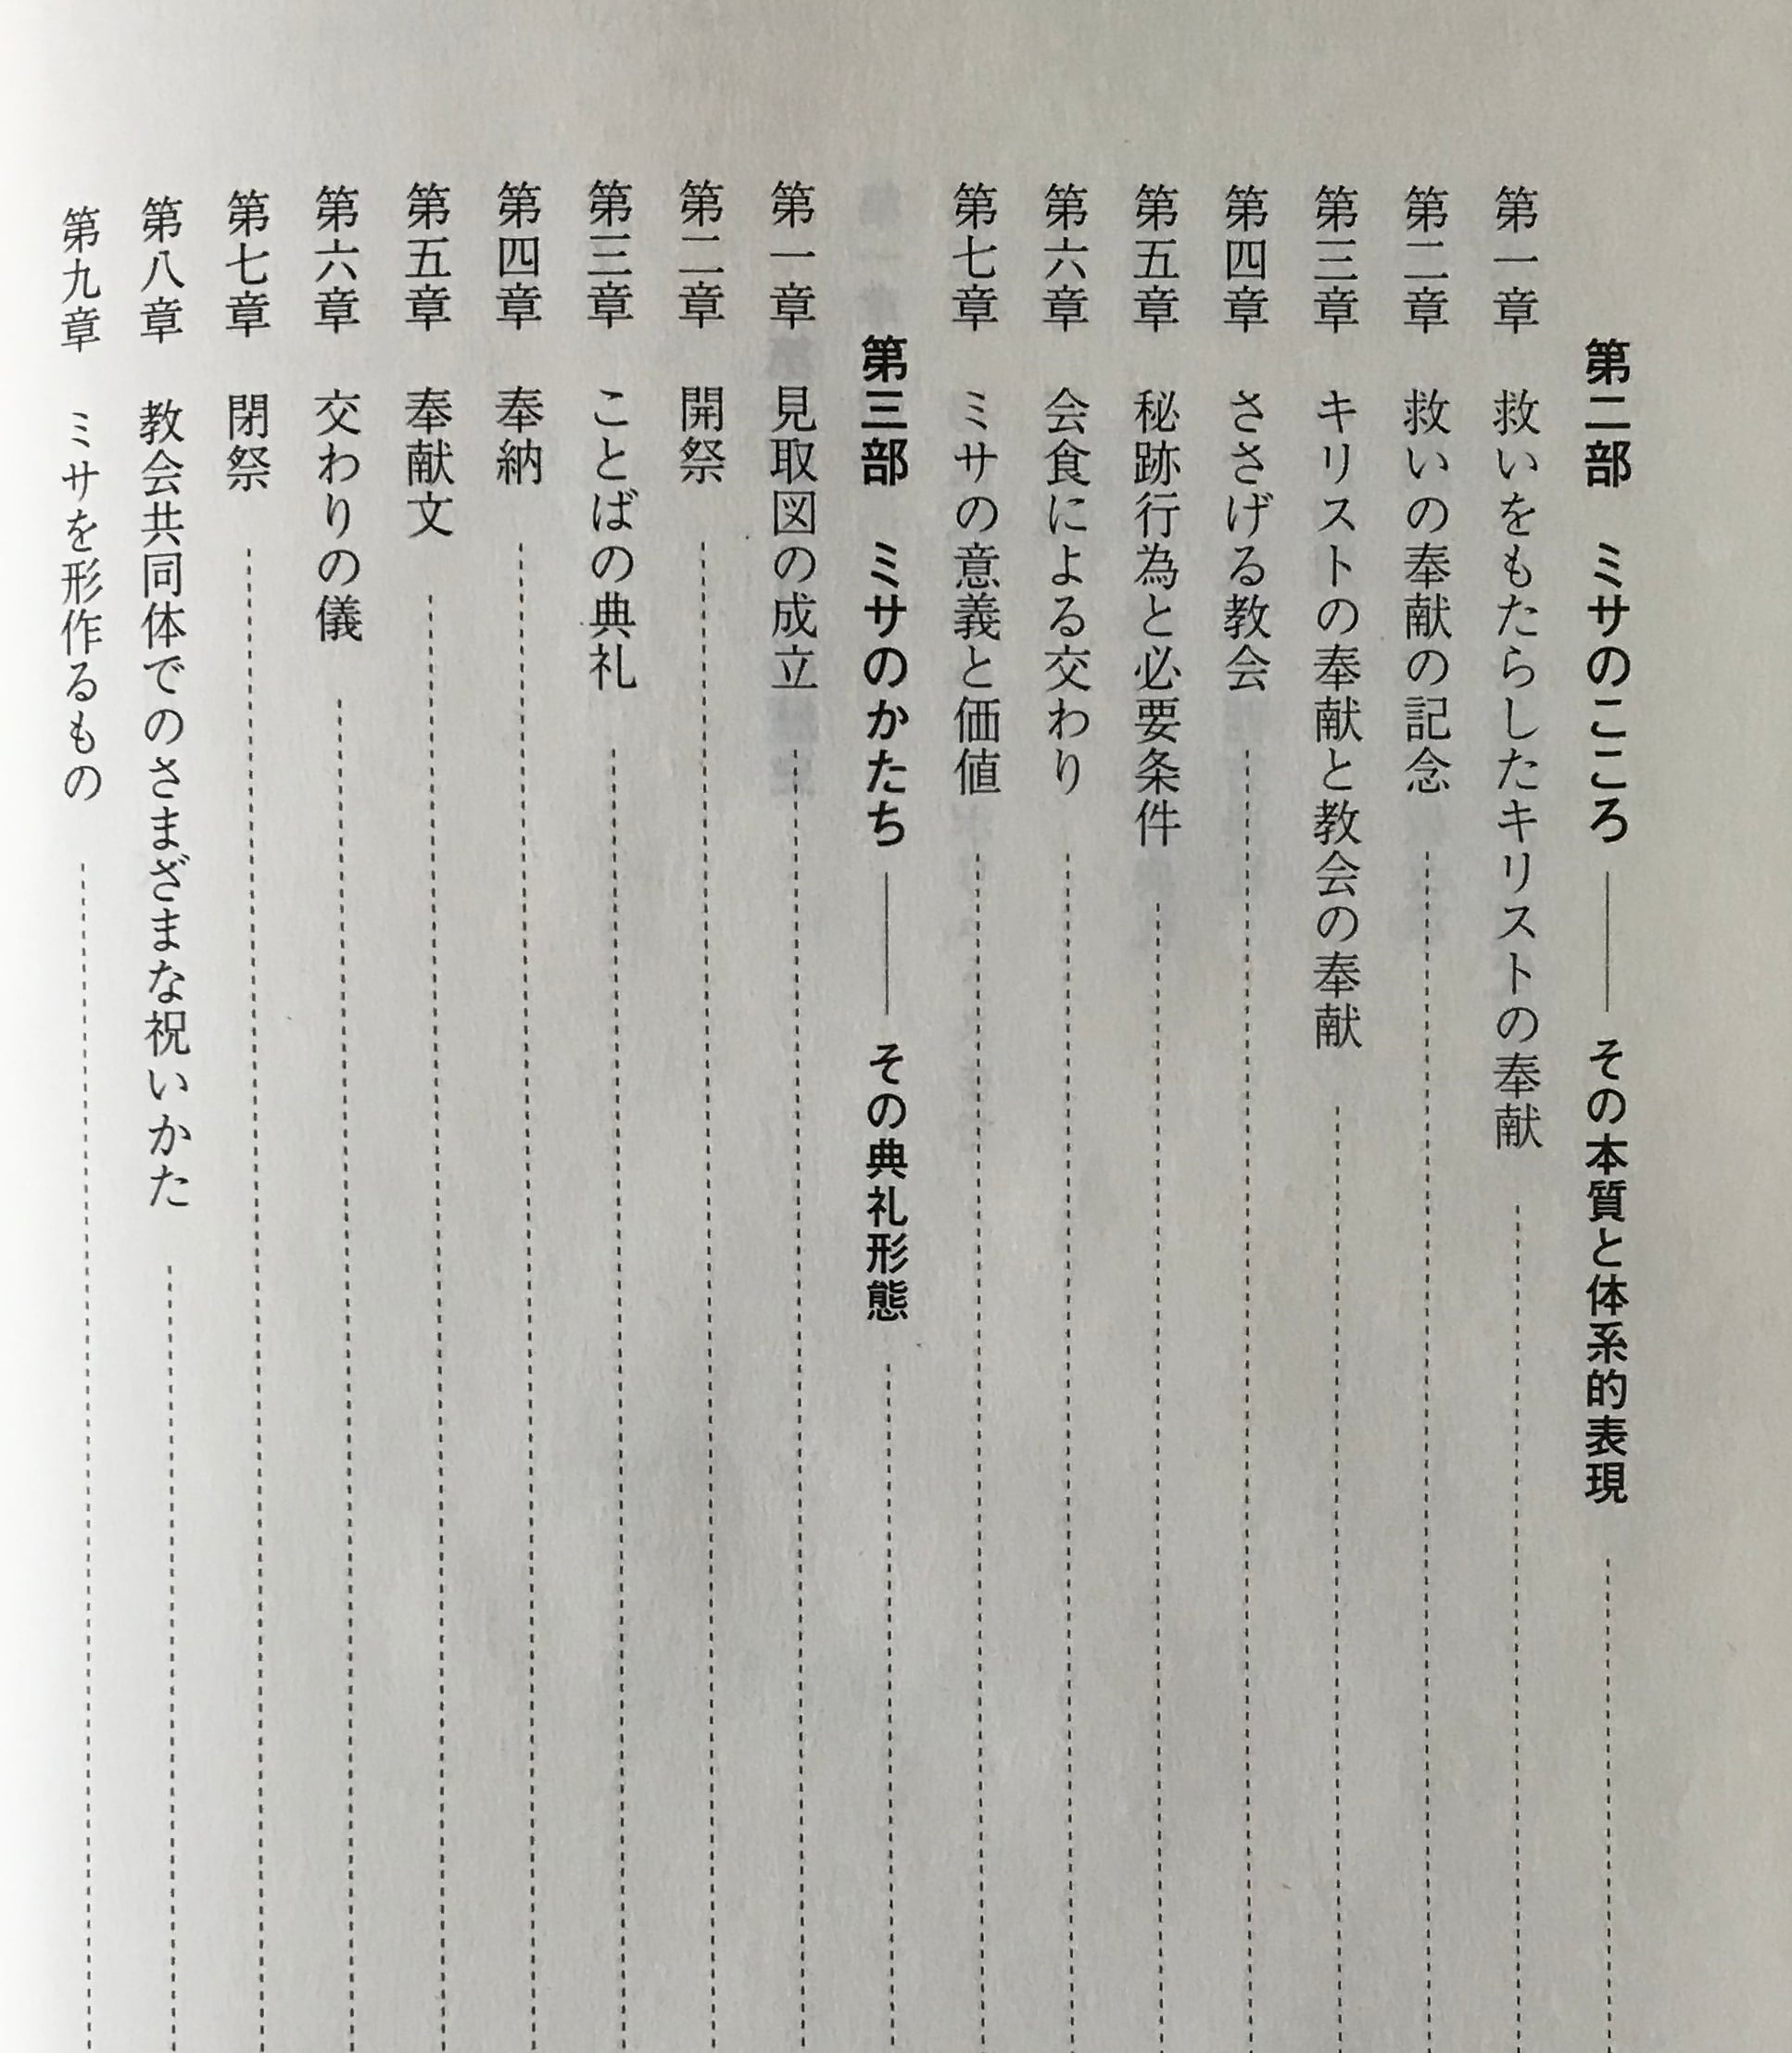 第二部　ミサのこころ――その本質と体系的表現
第一章　救いをもたらしたキリストの奉献
第二章　救いの奉献の記念
第三章　キリストの奉献と教会の奉献
第四章　ささげる教会
第五章　秘跡行為と必要条件
第六章　会食による交わり
第七章　ミサの意義と価値
第三部　ミサのかたち――その典礼形態
第一章　見取図の成立
第二章　開祭
第三章　ことばの典礼
第四章　奉納
第五章　奉献文
第六章　交わりの儀
第七章　閉祭
第八章　教会共同体でのさまざまな祝いかた
第九章　ミサを形作るもの